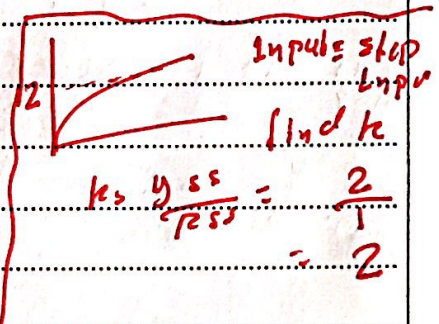 Input = step
Input
2
find k
k = yss / rss = 2 / 1
= 2